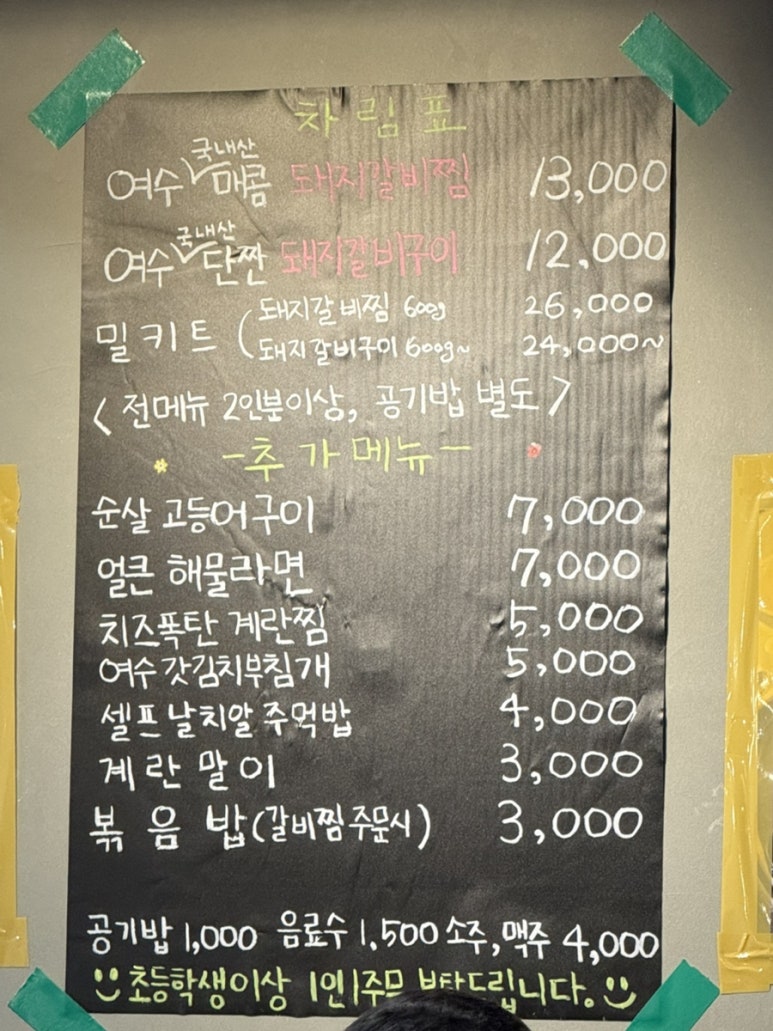 차림표
여수 국내산 매콤 돼지갈비찜 13,000
여수 국내산 단짠 돼지갈비구이 12,000
밀키트 ( 돼지갈비찜 600g 26,000
돼지갈비구이 600g~ 24,000~
< 전메뉴 2인분이상, 공기밥 별도 >
-추가메뉴-
순살 고등어구이 7,000
얼큰 해물라면 7,000
치즈폭탄 계란찜 5,000
여수갓김치부침개 5,000
셀프날치알주먹밥 4,000
계란말이 3,000
볶음밥(갈비찜주문시) 3,000
공기밥 1,000 음료수 1,500 소주,맥주 4,000
초등학생이상 1인1주문 부탁드립니다.